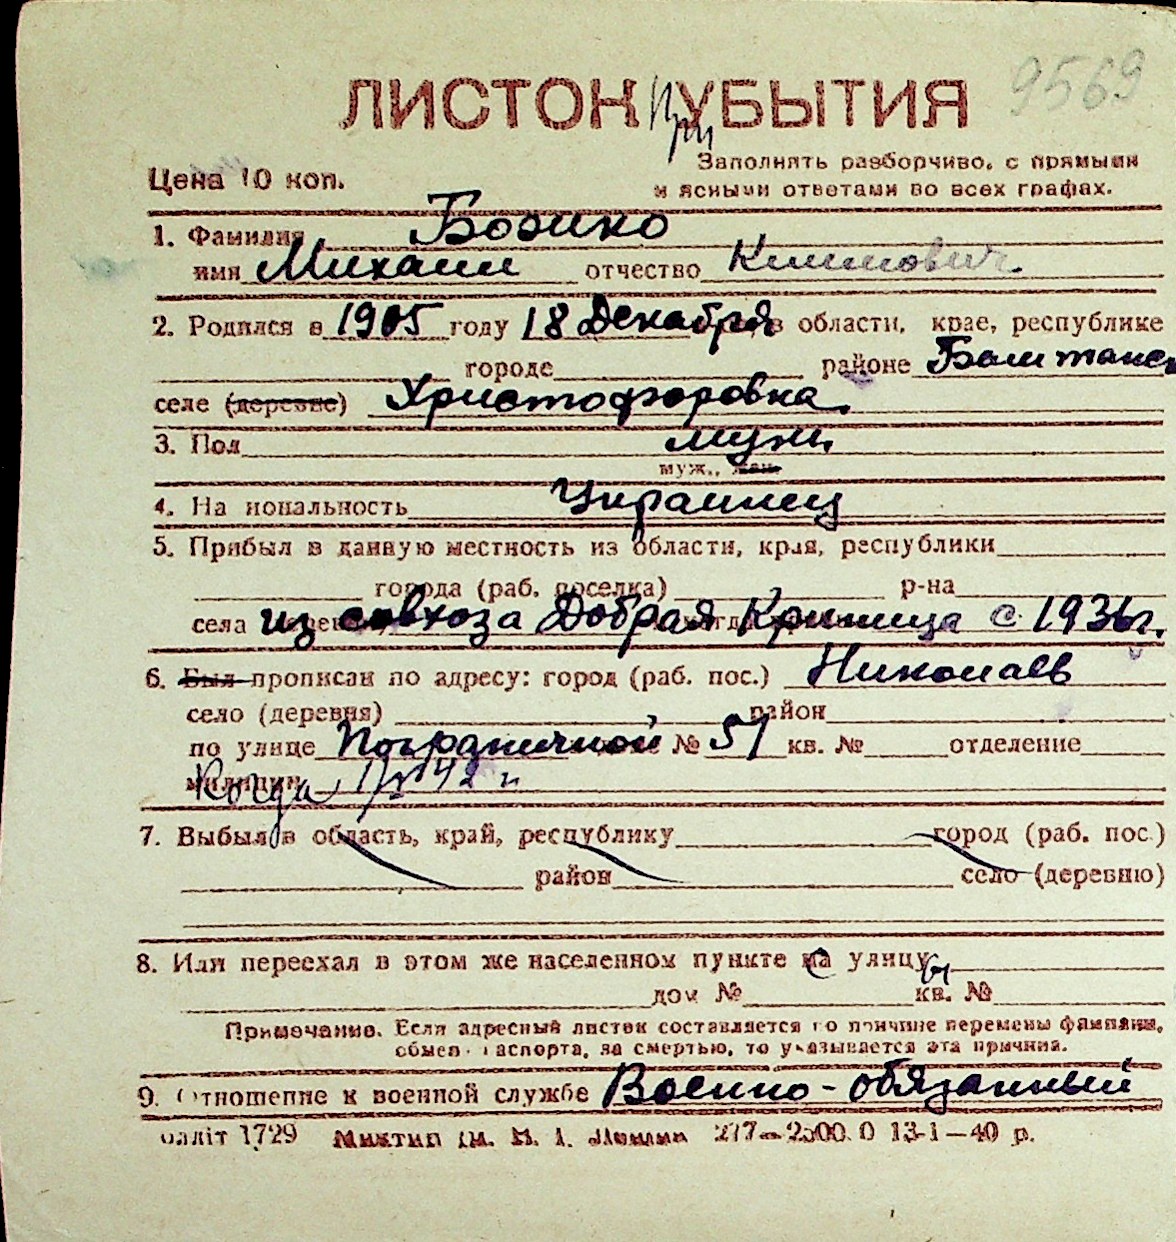 9569
ЛИСТОК при УБЫТИЯ
Цена 10 коп.
Заполнять разборчиво, с прямыми
и ясными ответами во всех графах.
1. Фамилия Бозико
имя Михаил отчество Климович
2. Родился в 1905 году 18 Декабря в области, крае, республике
городе районе Болтанск
селе (деревне) Христофоровка
3. Пол муж.
муж., жен.
4. Национальность Украинец
5. Прибыл в данную местность из области, края, республики
города (раб. поселка) р-на
села из совхоза Добрая Криница с 1936 г.
6. Был прописан по адресу: город (раб. пос.) Николаев
село (деревня) район
по улице Пограничной № 51 кв. № отделение
милиции Когда 1/IV 42 г.
7. Выбыл в область, край, республику город (раб. пос.)
район село (деревню)
8. Или переехал в этом же населенном пункте с улицы
дом № кв. №
Примечание. Если адресный листок составляется по причине перемены фамилии,
обмен паспорта, за смертью, то указывается эта причина.
9. Отношение к военной службе Военно-обязанный
облліт 1729 277-2500.0 13-1-40 р.